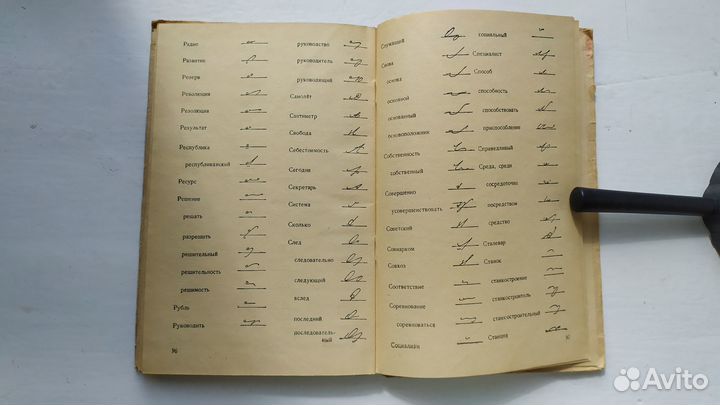 Радио
Развитие
Резерв
Революция
Резолюция
Результат
Республика
республиканский
Ресурс
Решение
решать
разрешить
решительный
решительность
решимость
Рубль
Руководить
96
руководство
руководитель
руководящий
Самолёт
Сантиметр
Свобода
Себестоимость
Сегодня
Секретарь
Система
Сколько
След
следовательно
следующий
вслед
последний
последователь-
ный
Служащий
Снова
основа
основной
основанный
основоположник
Собственность
собственный
Совершенно
усовершенствовать
Советский
Совнарком
Совхоз
Соответствие
Соревнование
соревноваться
Социализм
социальный
Специалист
Способ
способность
способствовать
приспособление
Справедливый
Среда, среди
сосредоточие
посредством
средство
Сталевар
Станок
станкостроение
станкостроитель
станкостроительный
Станция
Avito